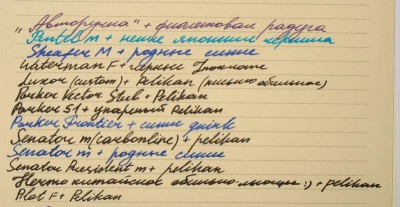 "Авторучка" + фиолетовая радуга
Pentel m + нежные японские чернила
Sheafer M + родные синие
Waterman F + чёрные
Luxor (custom) + Pelikan (письмо обильное)
Parker Vector Stub + Pelikan
Parker 51 + упаренный Pelikan
Parker Frontier + синие quink
Senator m (carbonline) + pelikan
Senator m + родные синие
Senator President m + pelikan
Hermo китайское обильно :) + pelikan
Pilot F + Pelikan